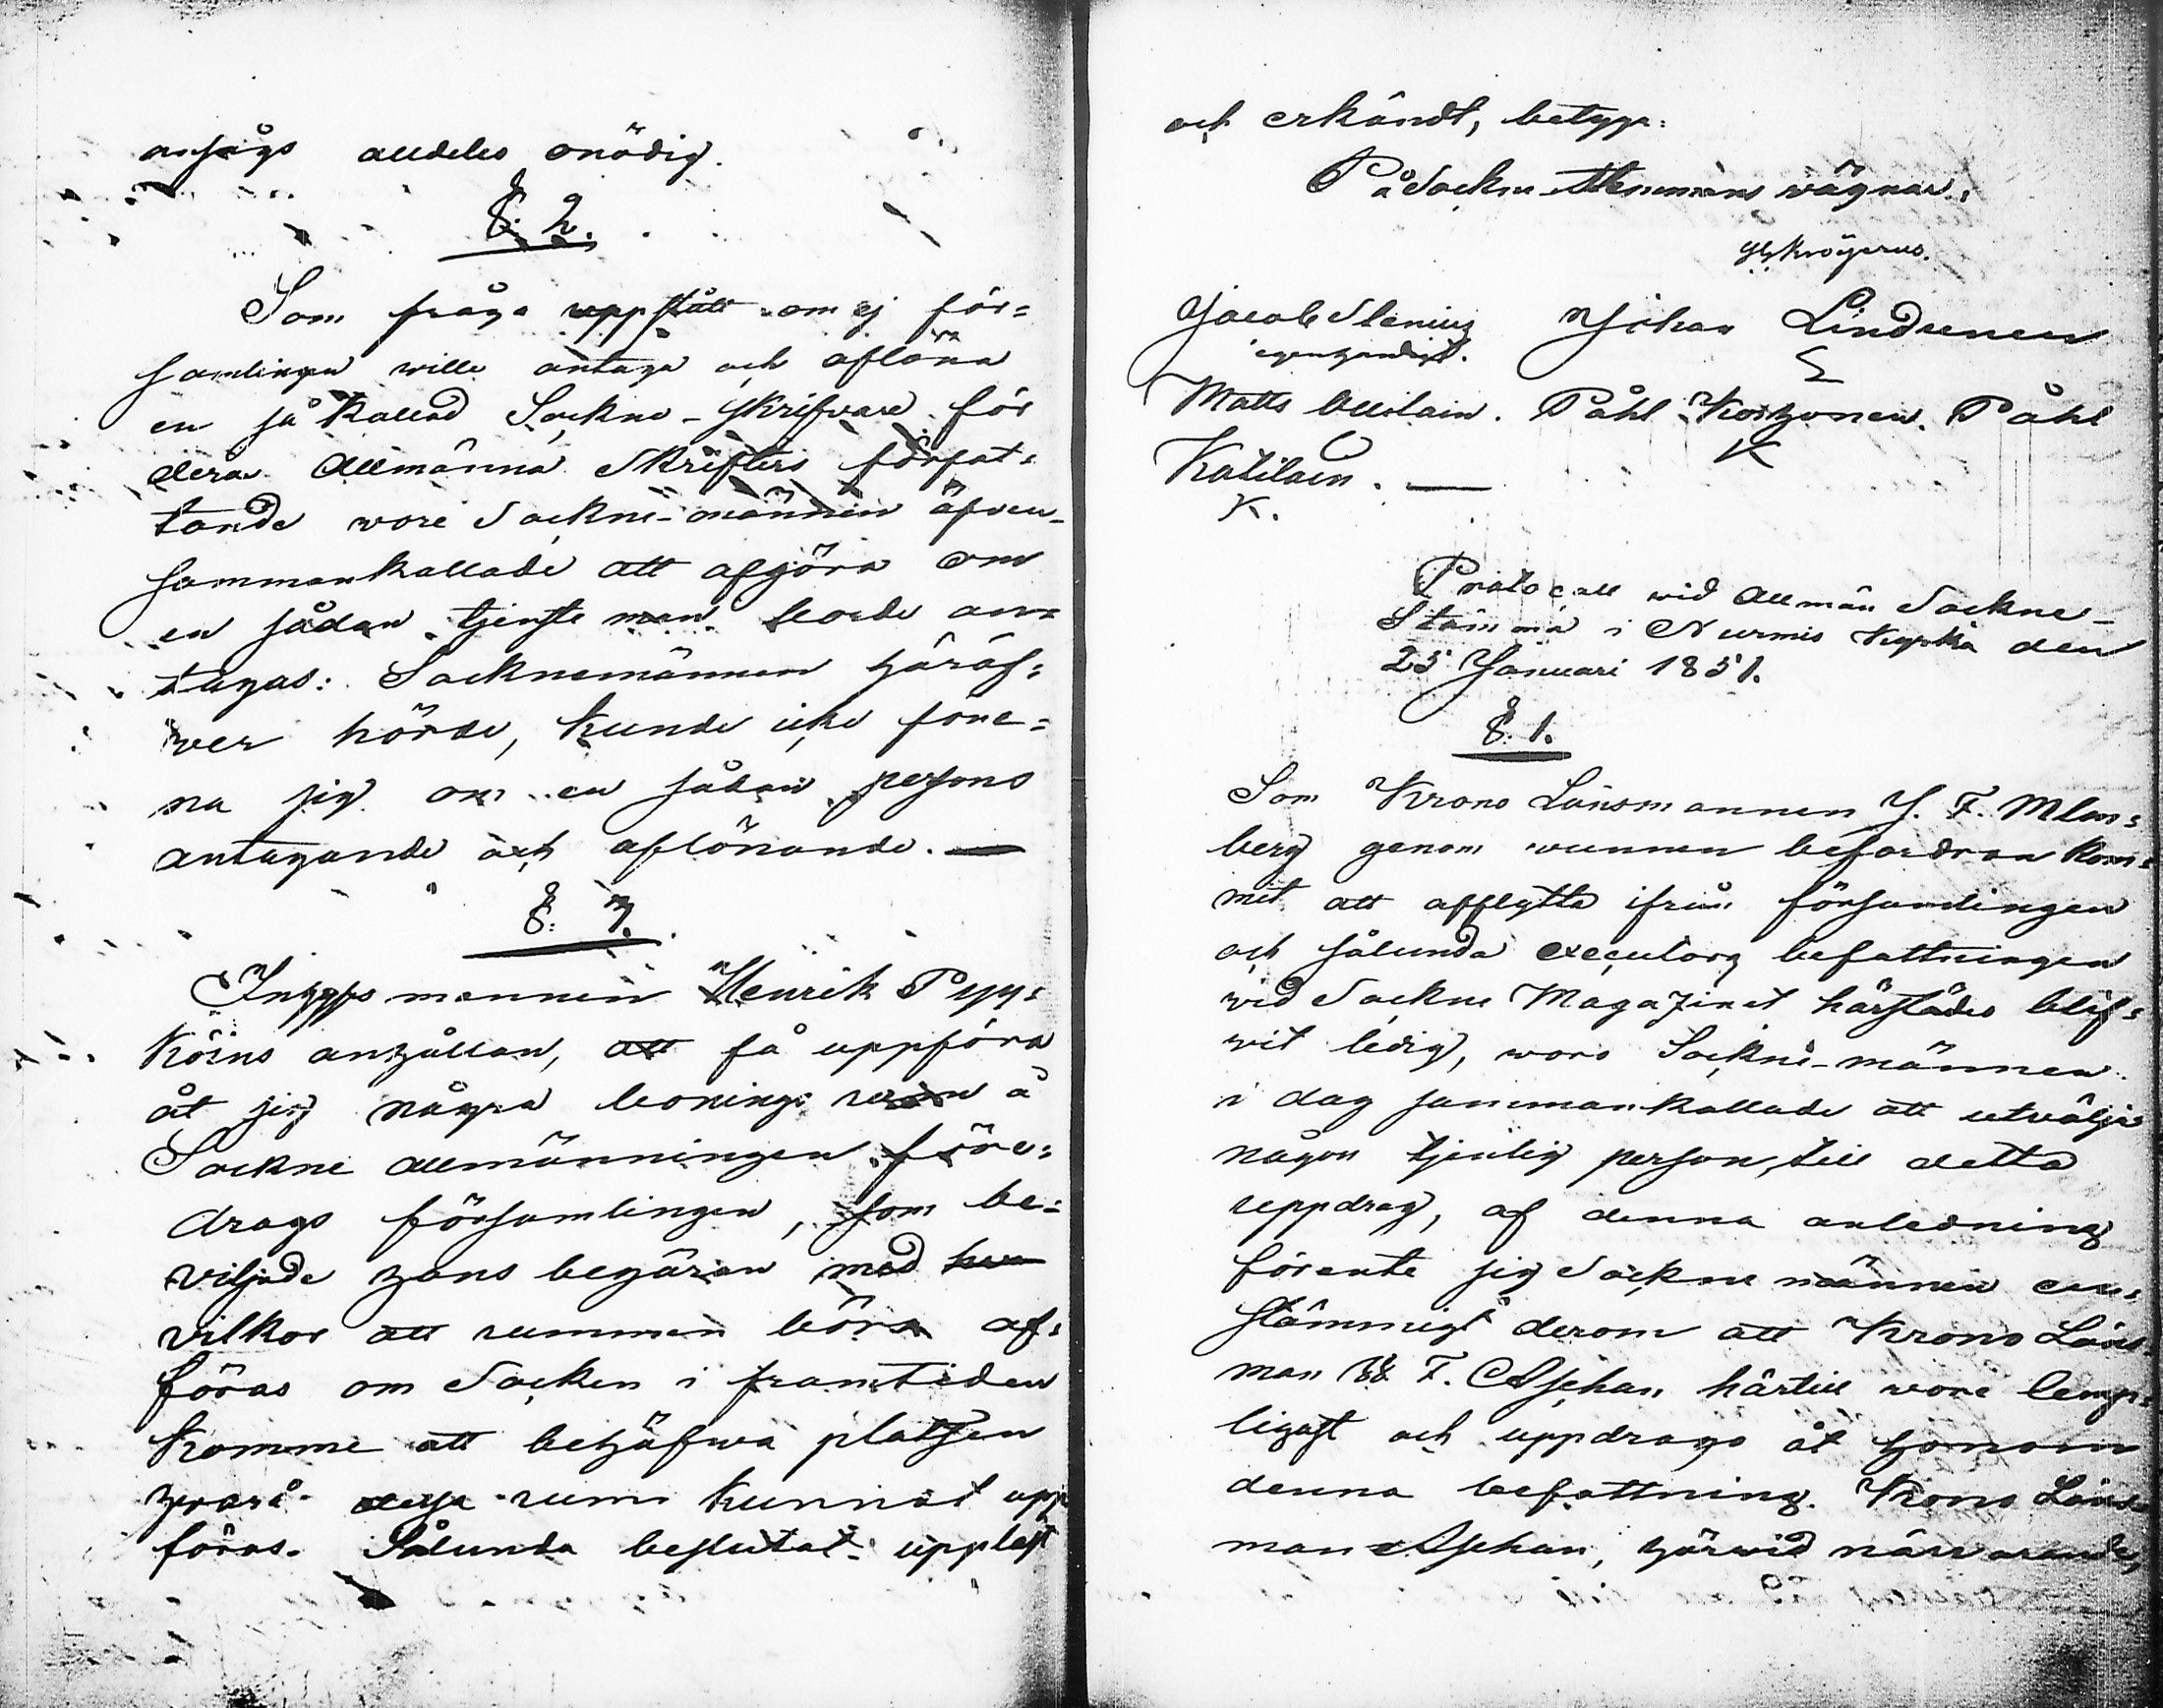 ansågs alldeles onödig.
§. 2.
Som fråga uppstått om ej för=
samlingen wille antaga och aflöna
en så kallad Sockne-skrifvare för
dera allmänna skrifters förfat=
tande wore Sockne-männen äfven-
sammankallade att afgöra om
en sådan tjenste man borde an=
tagas: Socknemännen häröf=
wer hörde, kunde icke före=
na sig om en sådan persons
antagande och aflönande. —
§. 3.
Inhyses mannen Henrik Pyy=
köins anhållan, att få uppföra
åt sig några bonings rum å
Sockne allmänningen före=
drogs församlingen, som be=
viljade hans begäran med
vilkor att rummen böra af=
föras om Socken i framtiden
komme att behöfwa platsen
hwarå dessa rum kunnat upp
föras. Sålunda beslutat: uppläst
och erkändt, betyga:
På Sockne Stemmans wägnar:
Krogerus.
Jacob Stenius Johan Lindunen
egenhändigt.
Matts Ollilain. Påhl Korhonen. Påhl
K
Katilain. —
K.
Protocoll wid Allmän Sockne-
Stämma i Nurmis Kyrka den
25 Januari 1851.
§. 1.
Som Krono Länsmannen J. F. Mlm=
berg genom wunnen befordran kom=
mit att afflytta ifrån församlingen
och sålunda executors befattningen
wid Sockne Magazinet härstädes blif=
wit ledig, woro Sockne-männen
i dag sammankallade att utwälja
någon tjenlig person till detta
uppdrag, af denna anledning
förente sig Sockne männen en=
stämmigt derom att Krono Läns
man F. Aschan härtill wore lemp=
ligast och uppdrogo åt honom
denna befattning. Krono Läns
man Aschan, härwid närwarande,